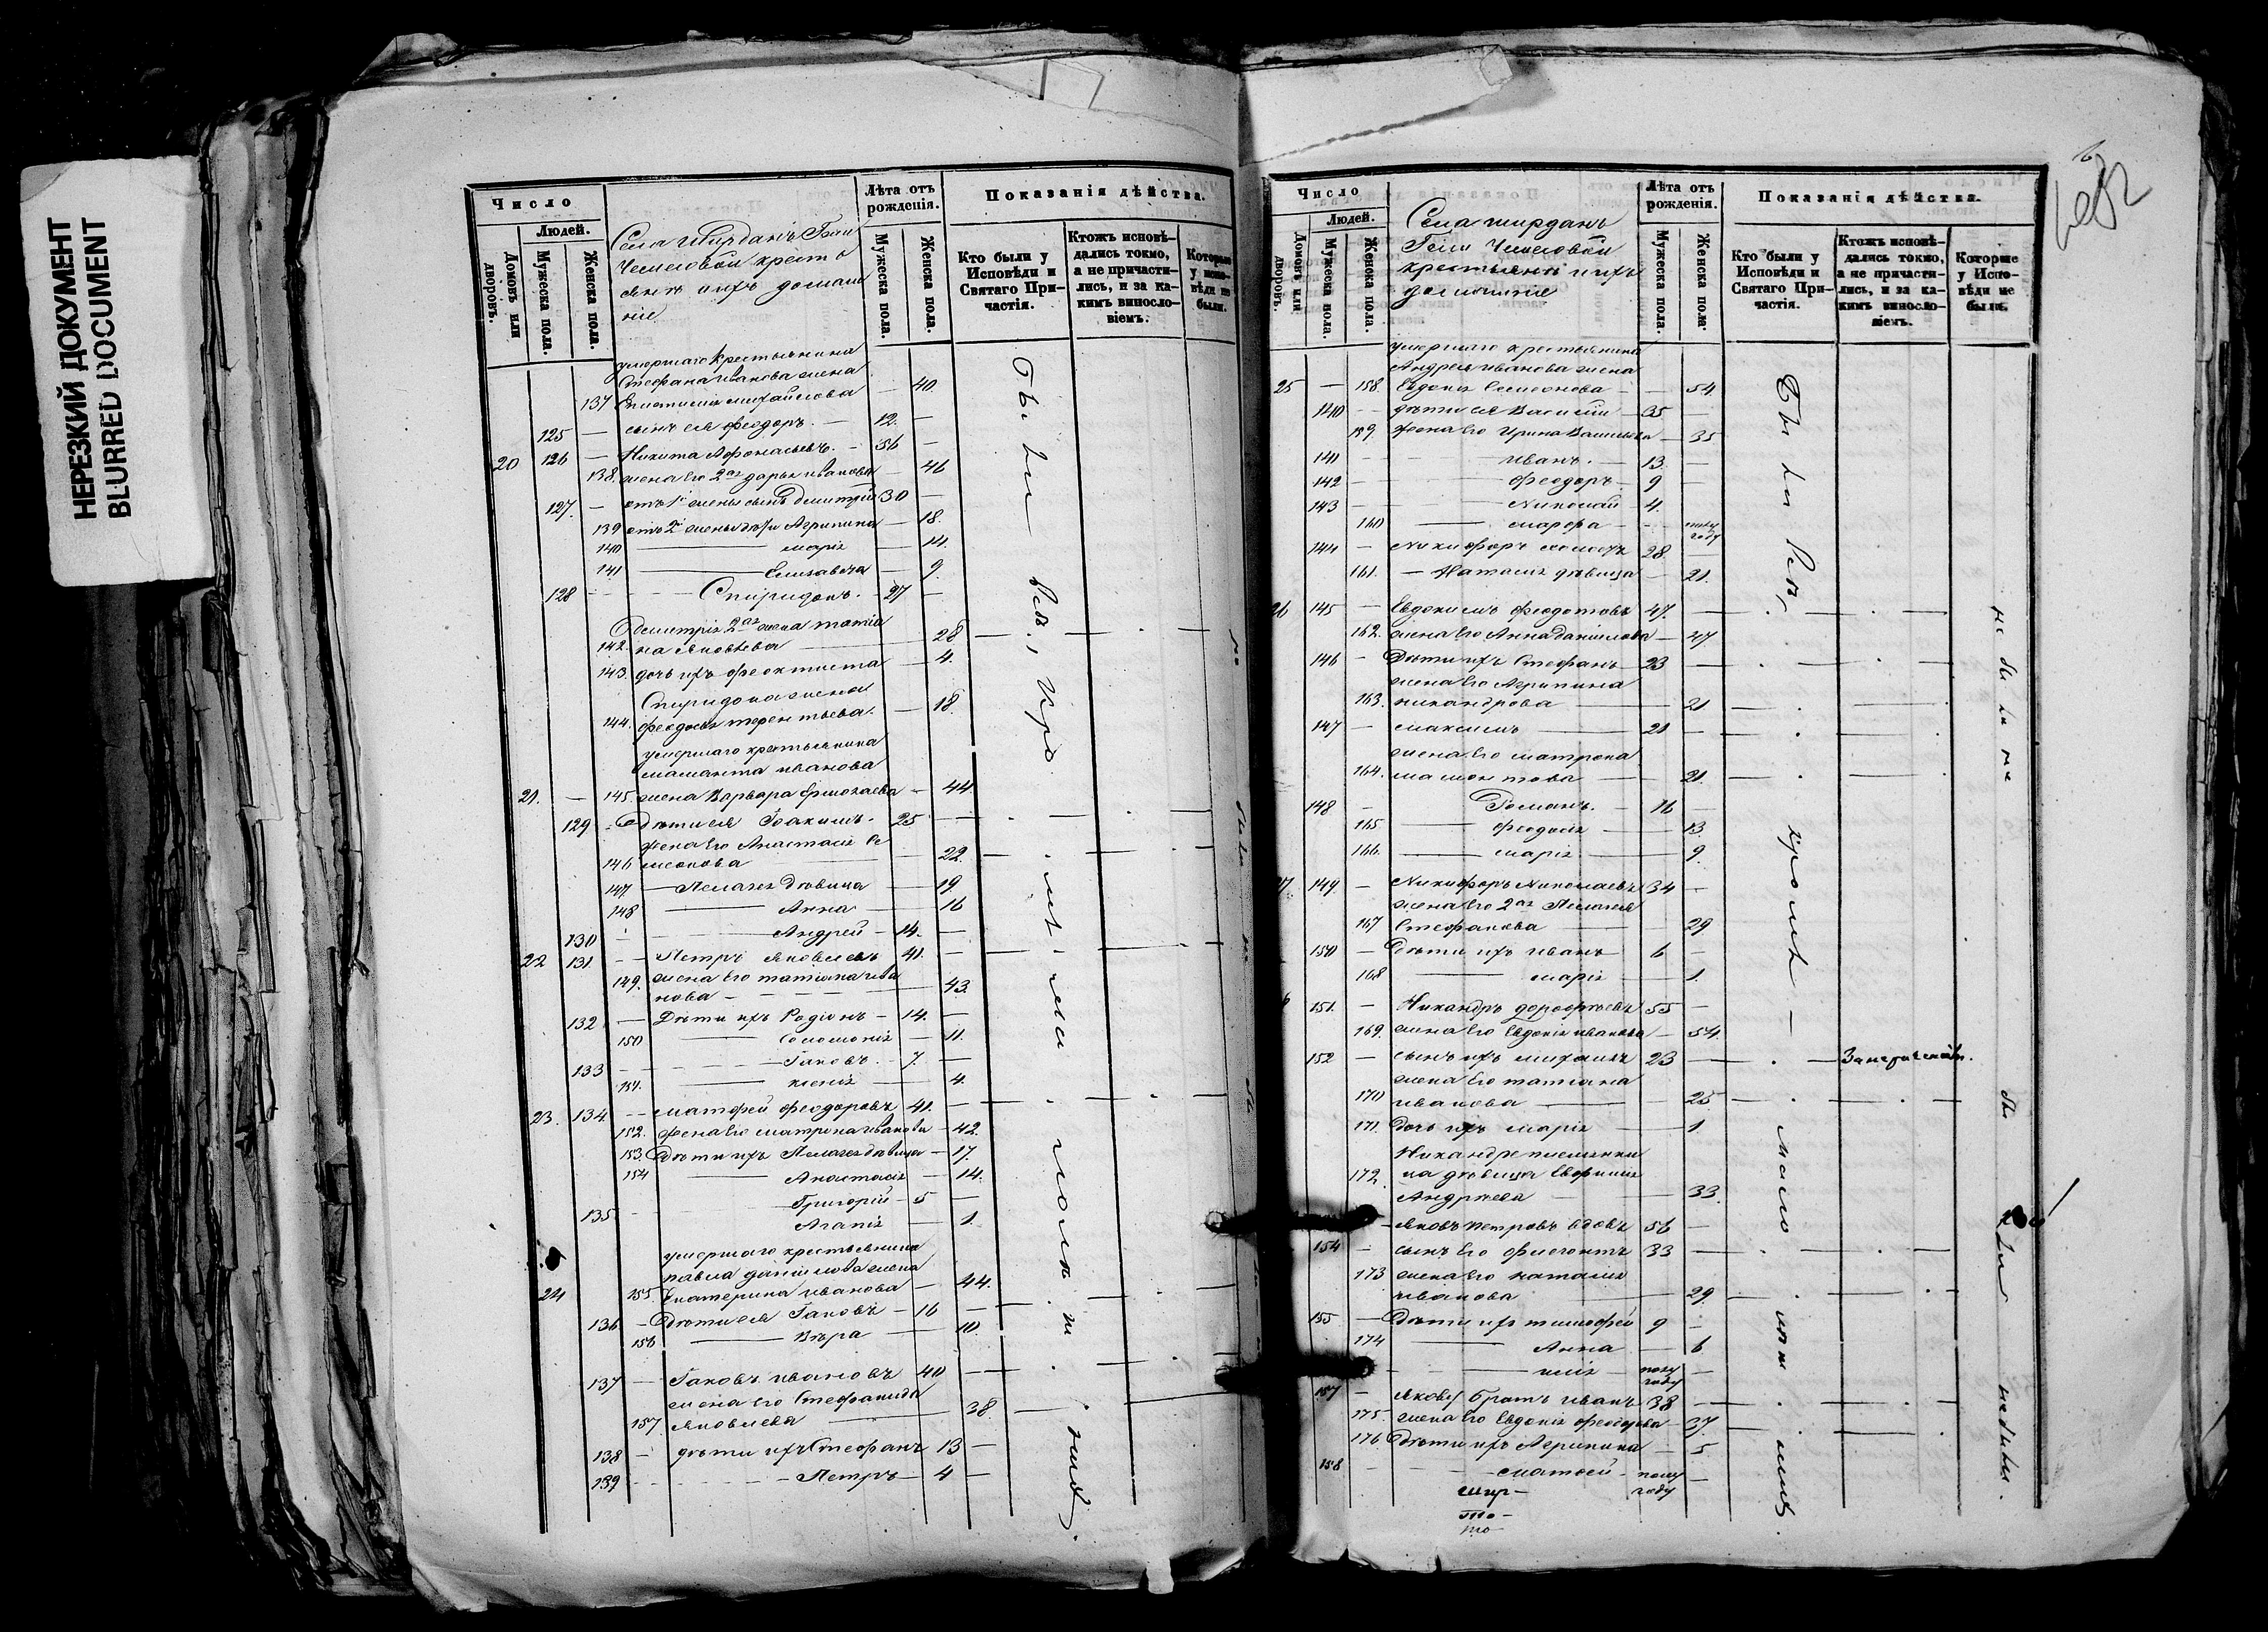 НЕРЕЗКИЙ ДОКУМЕНТ
BLURRED DOCUMENT
Число
Людей.
Домовъ или дворовъ.
Мужеска пола.
Женска пола.
Села Ширданъ Бой
Чемеловой кресть
янъ ихъ домаш
ніе
Лѣта отъ рожденія.
Мужеска пола.
Женска пола.
Показанія дѣйства.
Кто были у Исповѣди и Святаго Причастія.
Ктожъ исповѣдались токмо, а не причастились, и за какимъ винословіемъ.
Которые у исповѣди не были.
умершаго крестьянина
Стефана Иванова жена
137 Михайлова — 40.
125 — сынъ ея Феодоръ. — 12. —
20 126 — Никита Афонасьевъ. — 56 —
138. жена его 2ая Дарья Иванова — 46
127. — отъ 1й жены сынъ Димитрій 30 —
139 отъ 2й жены дѣти Агрипина — 18.
140 — Марія — 14.
141 — Елизавета — 9.
128 — Спиридонъ. — 27 —
Димитрія 2ая жена Татіа
142. на Яковлева — 28
143. дочь ихъ Феоктиста — 4.
Спиридона жена
144. Феодосья Терентьева. — 18.
умершаго крестьянина
Маманта Иванова
21. — 145. жена Варвара — 44.
129 — Дѣти ея Іоакимъ. — 25 —
жена его Анастасія Се
146 меонова — 22.
147. — Пелагея дѣвица — 19
148 — Анна — 16
130 — Андрей — 14. —
22 131. — Петръ Яковлевъ 41. —
149. жена его Татіана Ива
нова — 43.
132 — Дѣти ихъ Родіонъ — 14. —
150 — Соломонія — 11.
133 — Іаковъ. — 7. —
151. — Ксенія — 4.
23. 134. — Матфей Феодоровъ 41. —
152. жена его Матрона Иванова — 42.
153. Дѣти ихъ Пелагея дѣвица — 17.
154 — Анастасія — 14.
135 — Григорій — 5 —
Агапія — 1.
умершаго крестьянина
Павла Данилова жена
24 155. Екатерина Иванова — 44.
136. — Дѣти ея Іаковъ — 16 —
156 — Вѣра — 10.
137 — Іаковъ Ивановъ 40 —
жена его Стефанида
157. Яковлева — 38.
138 — дѣти ихъ Стефанъ 13 —
139 — Петръ — 4 —
Были
Всѣ,
кро
мѣ
Число
Людей.
Домовъ или дворовъ.
Мужеска пола.
Женска пола.
Села Ширданъ
Бой Чемеловой
крестьянъ и ихъ
домашніе
Лѣта отъ рожденія.
Мужеска пола.
Женска пола.
Показанія дѣйства.
Кто были у Исповѣди и Святаго Причастія.
Ктожъ исповѣдались токмо, а не причастились, и за какимъ винословіемъ.
Которые у Исповѣди не были.
умершаго крестьянина
Андрея Иванова жена
25 — 158. Евдокія Симеонова — 54.
140 — дѣти ея Василій — 35 —
159. жена его Ирина Васильева — 35
140 — Иванъ. — 13. —
142 — Феодоръ — 9 —
143 — Николай — 4. —
160 — Марфа — полу году
144 — Никифоръ холостъ 28. —
161. — Наталія дѣвица — 21.
26 145 — Евдокимъ Федотовъ 47. —
162. жена его Анна Данилова — 47
146 — Дѣти ихъ Стефанъ — 23 —
жена его Агрипина
163. Никандрова — 21
147 — Максимъ — 21 —
жена его Матрона
164. Мамонтова — 21.
148 — Романъ. — 16 —
165 — Феодосія — 13.
166. — Марія — 9.
149. — Никифоръ Николаевъ 34 —
жена его 2ая Пелагея
167 Стефанова — 29
150 — Дѣти ихъ Иванъ — 6 —
168 — Марія — 1.
151. — Никандръ Дорофеевъ 55 —
169. жена его Евдокія Иванова — 54.
152 — сынъ ихъ Михаилъ 23 —
жена его Татіана
170 Иванова — 25
171. дочь ихъ Марія — 1.
Никандра племянни
172. ца дѣвица Евфимія
Андреева — 33.
Яковъ Петровъ вдовъ 56 —
154 — сынъ его Флегонтъ 33 —
173 жена его Наталія
Иванова — 29.
155 — Дѣти ихъ Тимофей 9 —
174 — Анна — 6
— Илія — полу году —
157 — Якову братъ Иванъ 38 —
175. жена его Евдокія Феодорова — 37.
176 Дѣти ихъ Агрипина — 5
158 — Матвей — полу году —
Были
Всѣ,
кромѣ